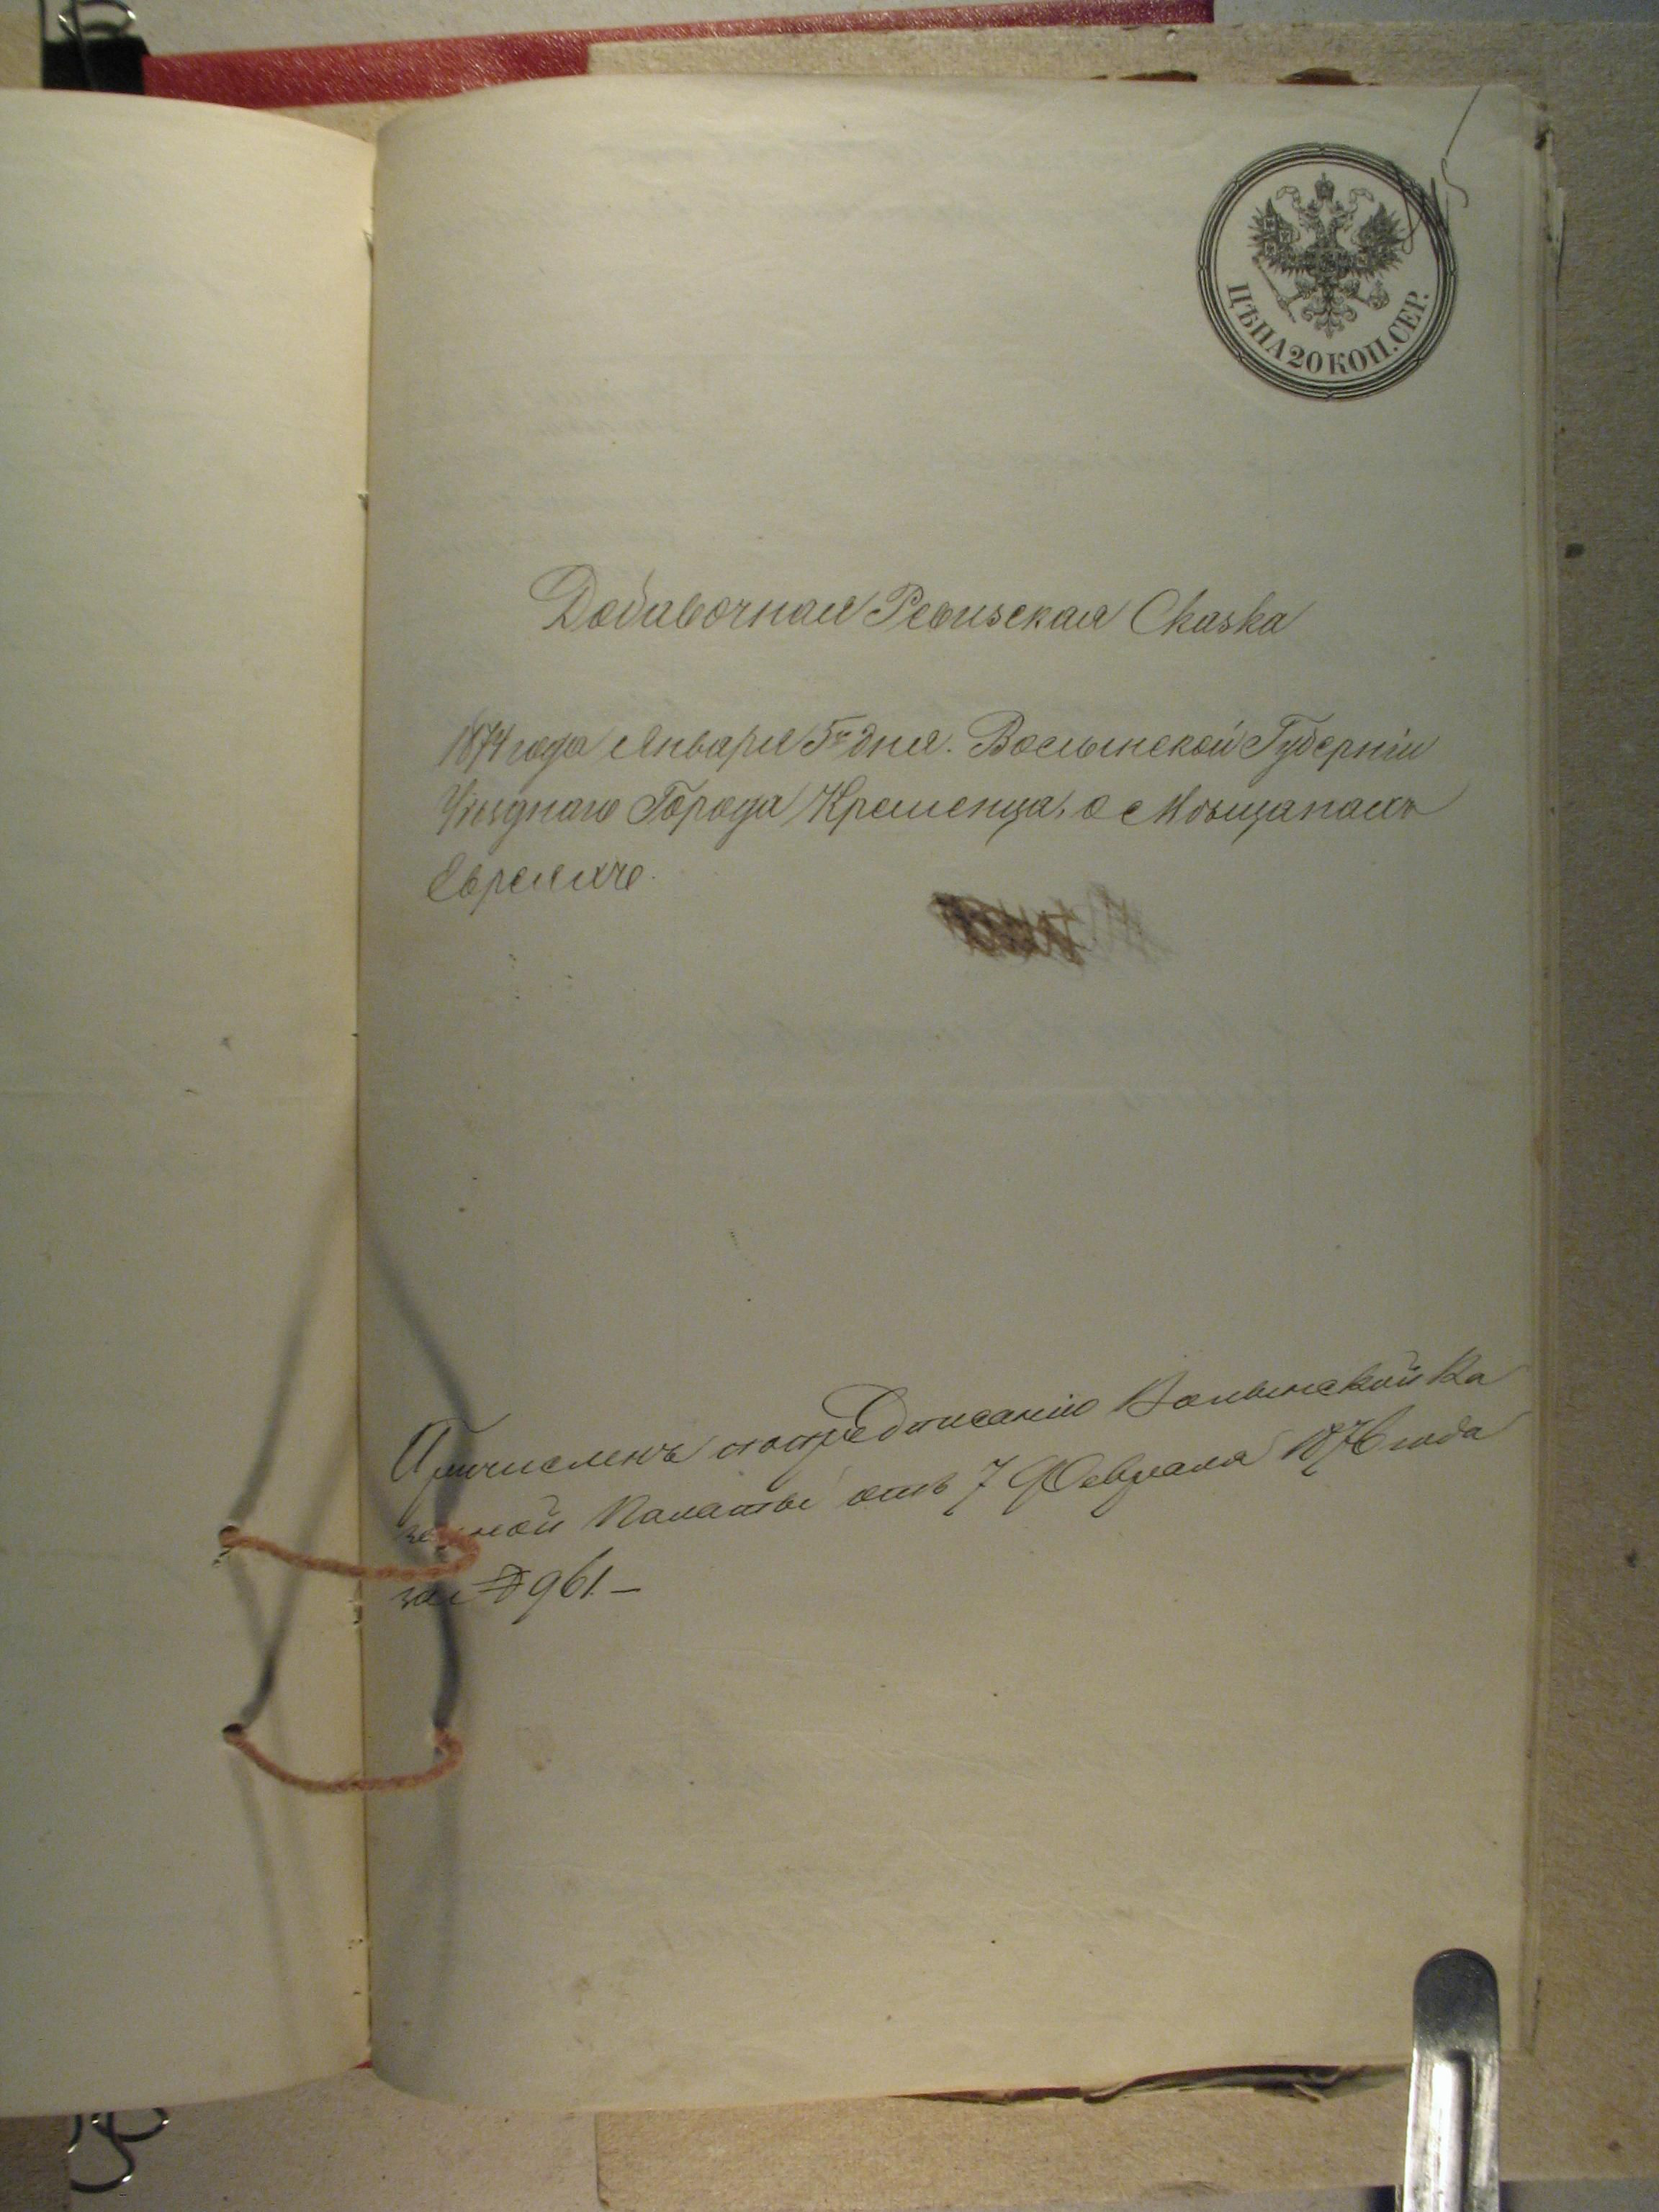 ЦѢНА 20 КОП. СЕР.
Добавочная Ревизская Сказка
1874 года Января 5го дня. Волынской Губерніи
Уѣзднаго Города Кременца, о Мѣщанахъ
Евреяхъ.
Причисленъ по предписанію Волынской Ка
зенной Палаты отъ 7 Февраля 1876 года
за № 961.—